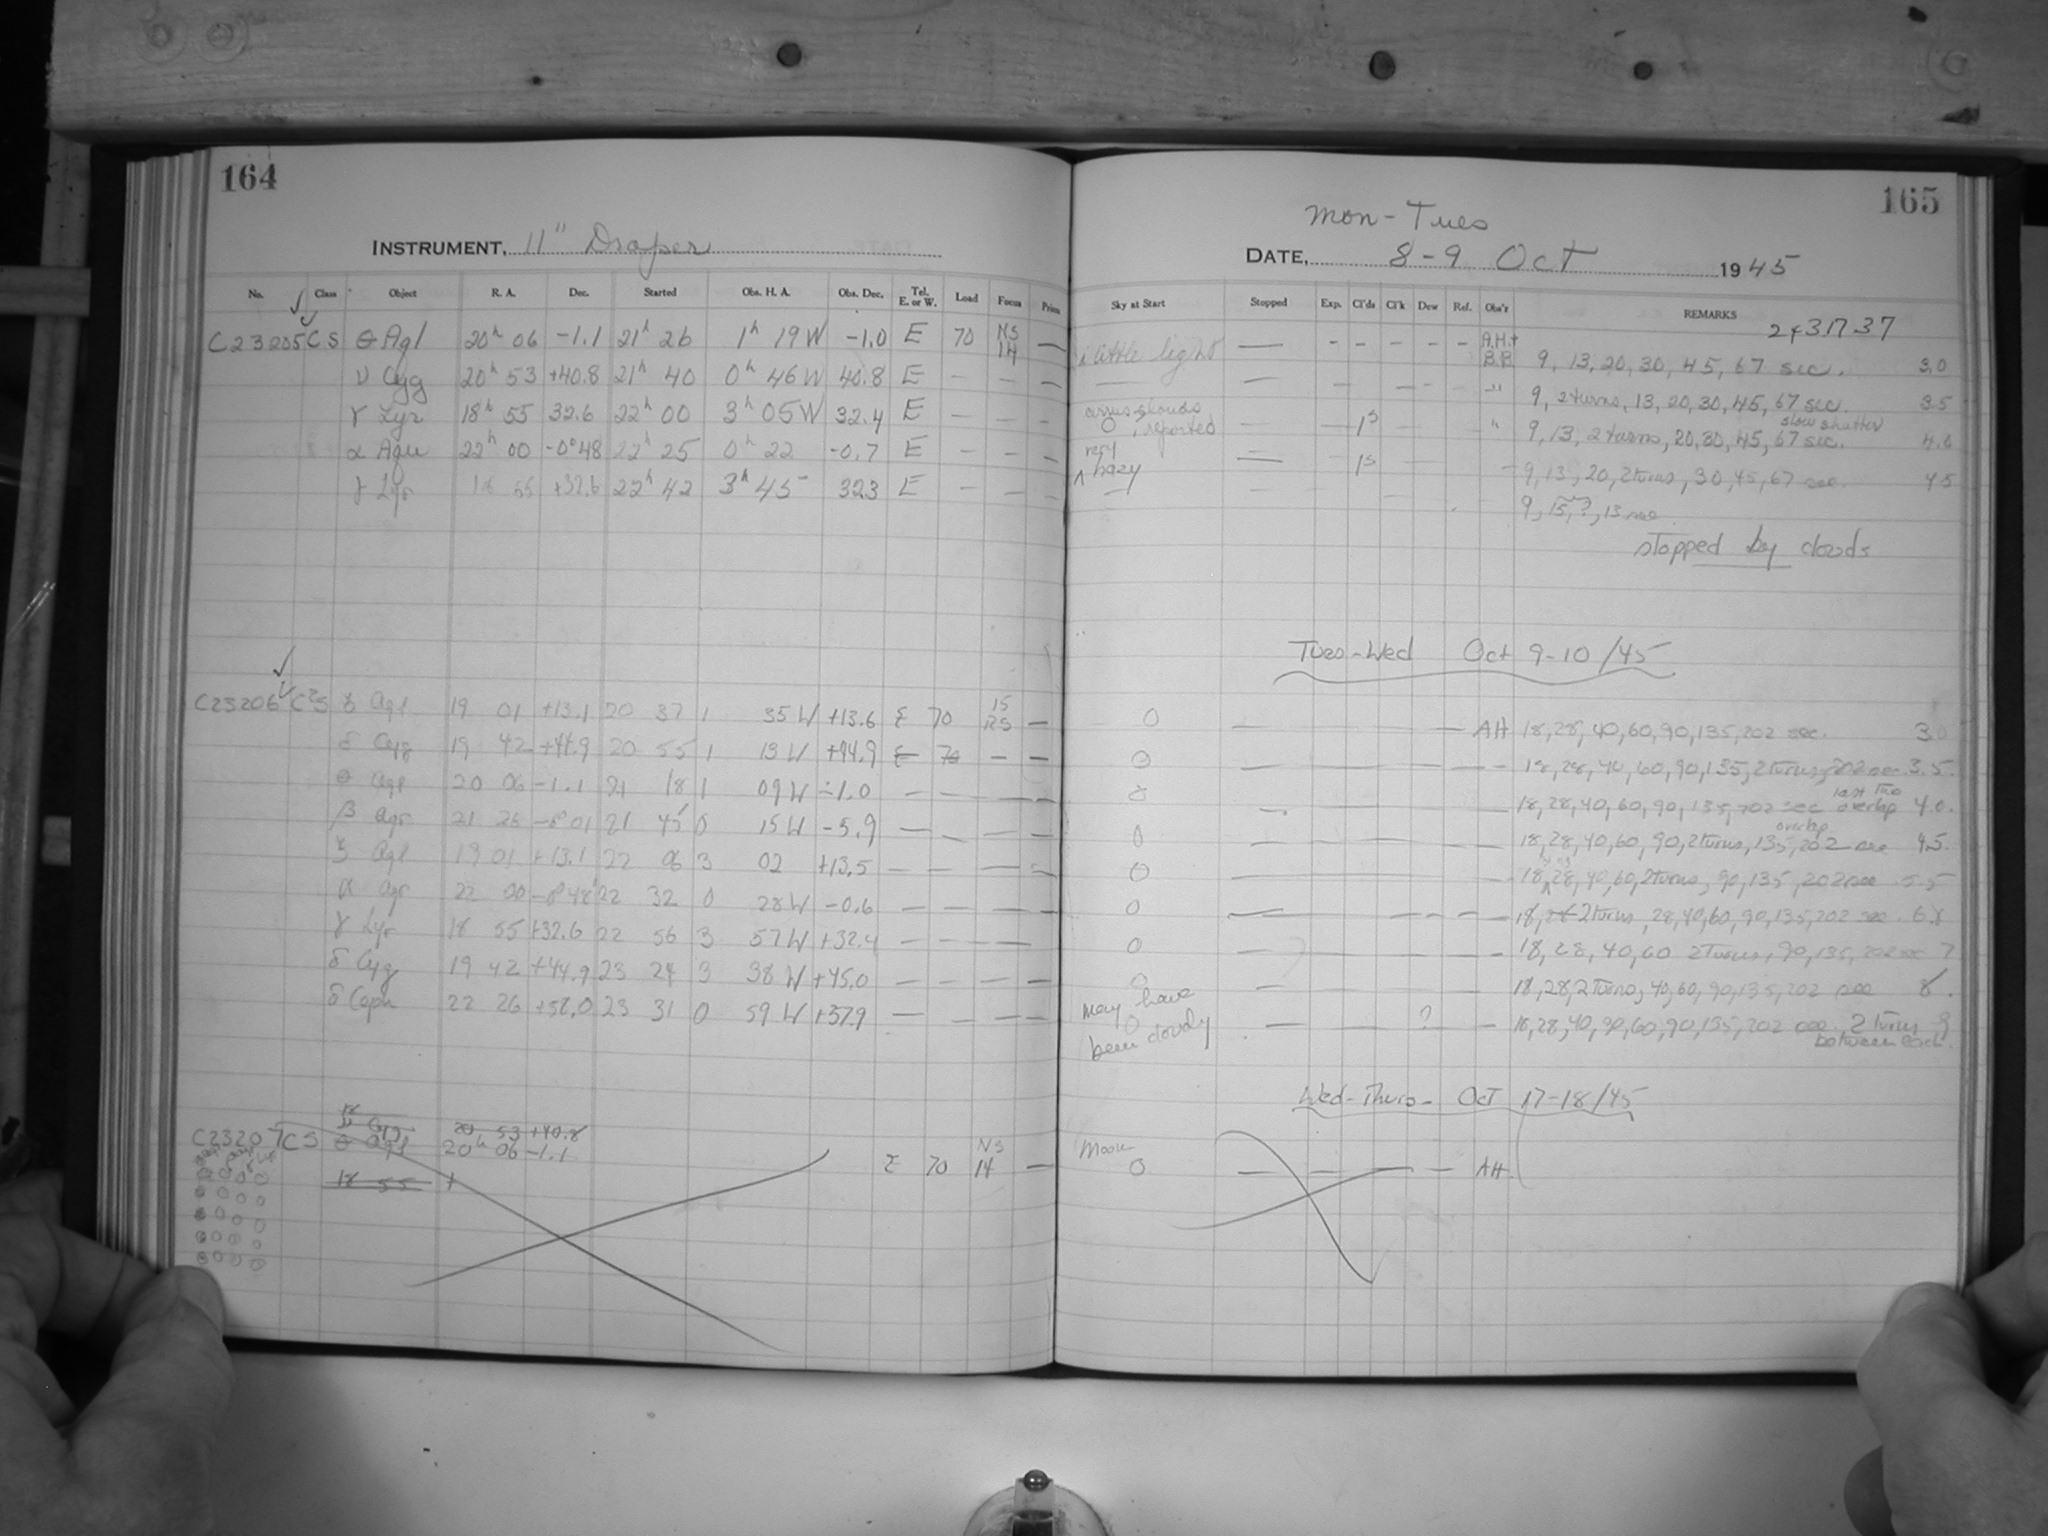 164
INSTRUMENT, 11" Draper
No. Class Object R. A. Dec. Started Obs. H. A. Obs. Dec. Tel. E. or W. Load Focus Prism
C23205 CS θ Agl 20h 06 -1.1 21h 26 1h 19W -1.0 E 70 NS 14 —
ν Cyg 20h 53 +40.8 21h 40 0h 46W 40.8 E — — —
γ Lyr 18h 55 32.6 22h 00 3h 05W 32.4 E — — —
α Aqu 22h 00 -0°48 22h 25 0h 22 -0.7 E — — —
γ Lyr 18 55 +32.6 22h 42 3h 45 323 E — — —
C23206 CS ζ Agl 19 01 +13.1 20 37 1 35W +13.6 E 70 15 —
δ Cyg 19 42 +44.9 20 55 1 13W +44.9 E 70 — —
θ Agl 20 06 -1.1 21 18 1 09W -1.0 — — — —
β Aqr 21 26 21 45 0 15W -5.9 — — — —
ζ Agl 19 01 +13.1 22 06 3 02 +13.5 — — — —
α Aqr 22 00 -0°48' 22 32 0 28W -0.6 — — — —
γ Lyr 18 55 +32.6 22 56 3 57W +32.4 — — — —
δ Cyg 19 42 +44.9 23 24 3 38W +45.0 — — — —
δ Ceph 22 26 +58.0 23 31 0 59W +57.9 — — — —
ν Cyg 20 53 +40.8
C23207 CS θ Agl 20h 06 -1.1 E 70 NS 14 —
18 55 +
165
Mon - Tues
DATE, 8-9 Oct 1945
Sky at Start Stopped Exp. Cl'ds Cl'k Dew Ref. Obs'r REMARKS
2431737
little light — - - - - - A.H.+ B.B. 9, 13, 20, 30, 45, 67 sec. 3.0
— — — — " 9, 2 turns, 13, 20, 30, 45, 67 sec. 3.5
cirrus clouds reported — — 1s " 9, 13, 2 turns, 20, 30, 45, 67 sec. slow shutter 4.0
very hazy — — 1s — 9, 13, 20, 2 turns, 30, 45, 67 sec. 4.5
— 9, 15, ?, 13 sec
stopped by clouds
Tues-Wed Oct 9-10/45
0 — — AH 18, 28, 40, 60, 90, 135, 202 sec. 3.0
0 — 18, 28, 40, 60, 90, 135, 2 turns, 202 sec 3.5
0 — 18, 28, 40, 60, 90, 135, 202 sec last two overlap 4.0
0 — 18, 28, 40, 60, 90, 2 turns, 135, 202 sec overlap 4.5
0 — 18, 28, 40, 60, 2 turns, 90, 135, 202 sec 5.5
0 — 18, 28 2 turns, 28, 40, 60, 90, 135, 202 sec
0 — 18, 28, 40, 60 2 turns, 90, 135, 202 sec 7
0 — 18, 28, 2 turns, 40, 60, 90, 135, 202 sec 8
may have been cloudy 0 — ? — 18, 28, 40, 90, 60, 90, 135, 202 sec. 2 turns between each. 9
Wed-Thurs- Oct 17-18/45
Moon
0 — — — — AH